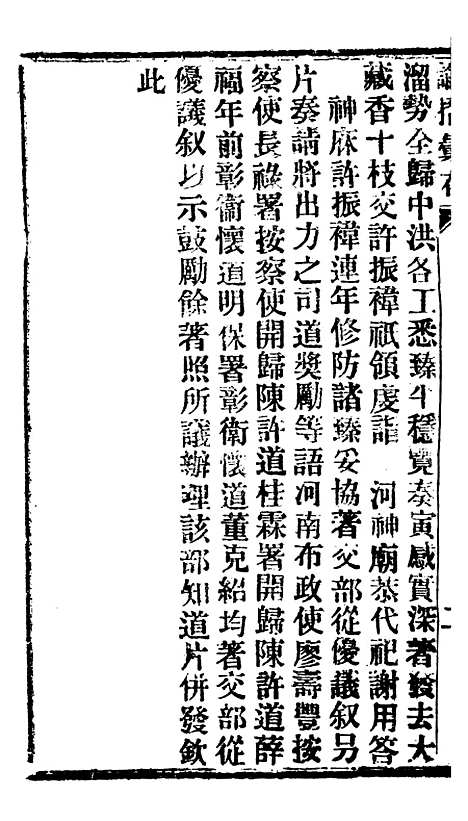 諭摺彙存
溜勢全歸中洪各工悉臻平穩覽奏寅感實深著發去大
藏香十枝交許振禕祇領虔詣　河神廟恭代祀謝用答
神庥許振禕連年修防諸臻妥協著交部從優議叙另
片奏請將出力之司道獎勵等語河南布政使廖壽豐按
察使長祿署按察使開歸陳許道桂霖署開歸陳許道薛
福年前彰衞懷道明保署彰衛懷道董克紹均著交部從
優議叙以示鼓勵餘著照所議辦理該部知道片併發欽
此